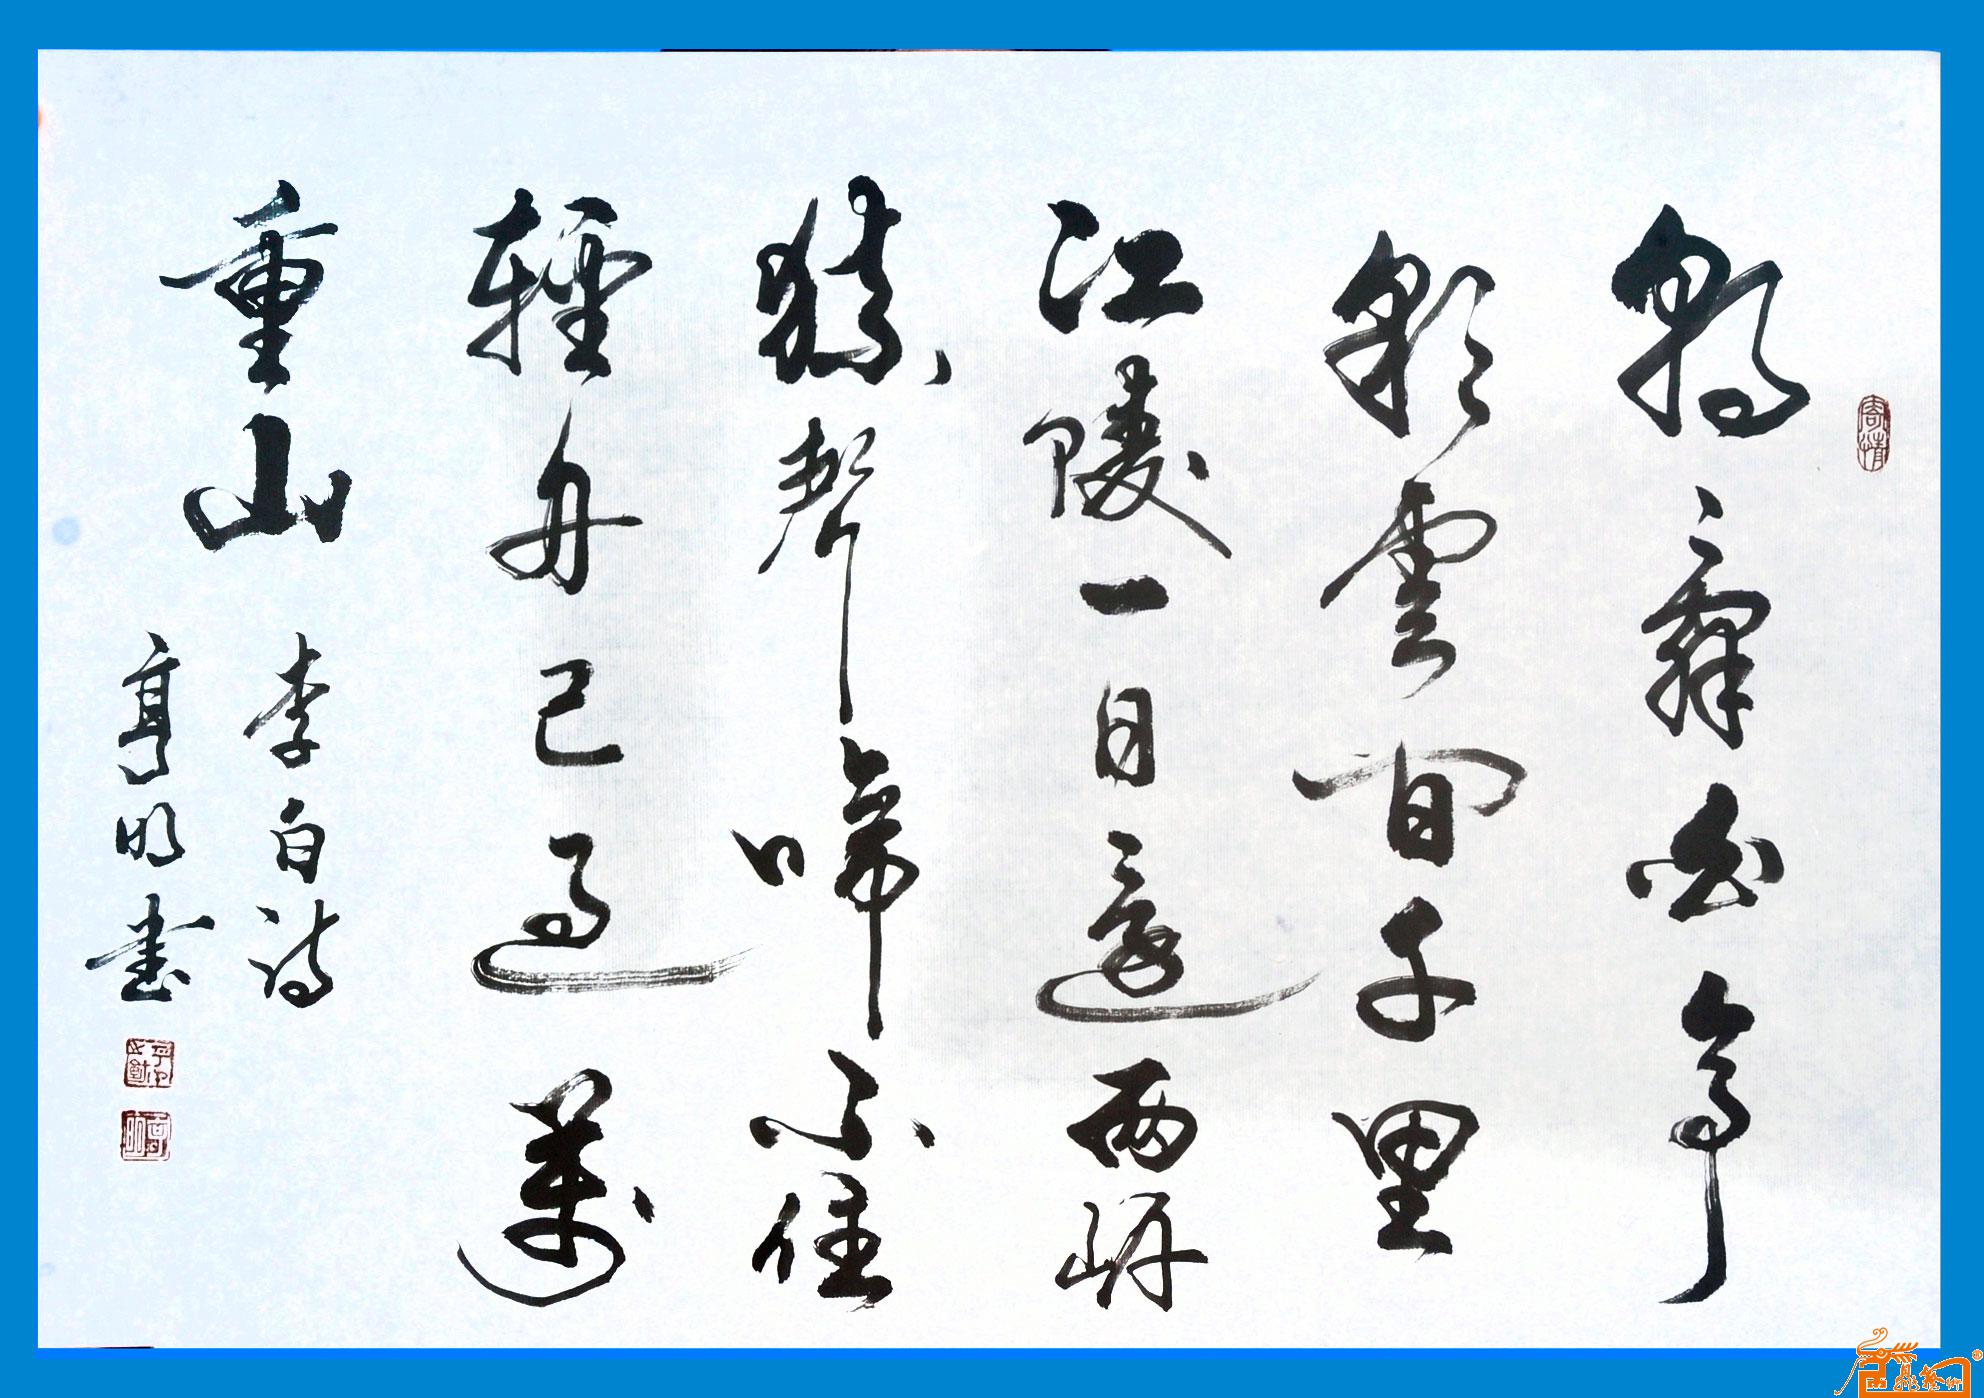 寄情
朝辭白帝
彩雲間千里
江陵一日還兩岸
猿聲啼不住
輕舟已過萬
重山
李白詩
明書